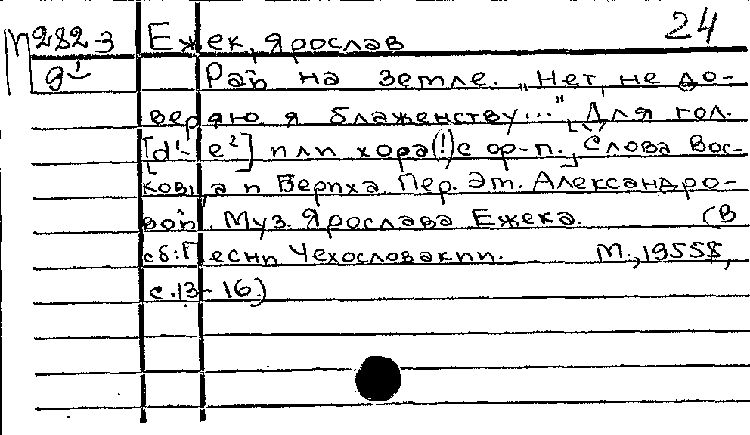 М282-3 Ежек, Ярослав 24
g¹ Рай на земле. „Нет, не до-
веряю я блаженству...” Для гол.
[d¹- e²] или хора(!) с ф-п. Слова Вос-
ковца и Вериха. Пер. Эт. Александро-
вой. Муз. Ярослава Ежека. (В
сб: Песни Чехословакии. М., 1955,
с. 13-16)